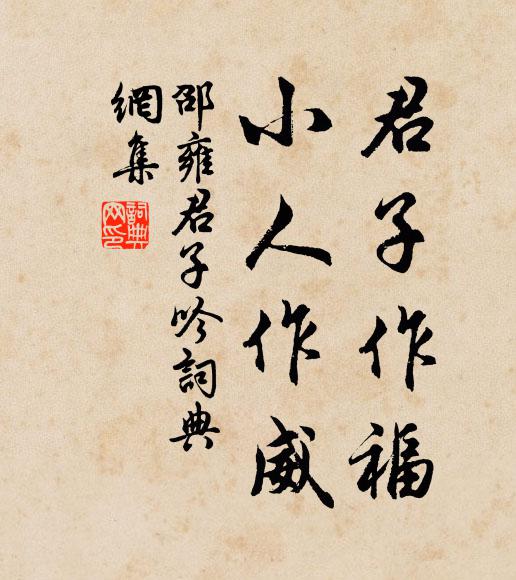 君子作福
小人作威
邵雍君子吟詞典
網集
詞典
网印